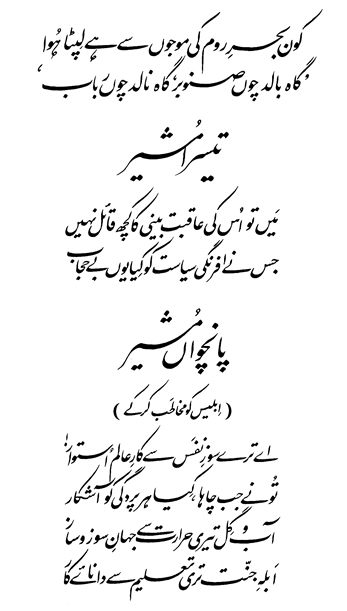 کون بحرِ روم کی موجوں سے ہے لپٹا ہُوا
’گاہ بالد چوں صنوبر، گاہ نالد چوں رباب‘
تیسرا مُشیر
مَیں تو اُس کی عاقبت بینی کا کچھ قائل نہیں
جس نے افرنگی سیاست کو کِیا یوں بے حجاب
پانچواں مُشیر
( اِبلیس کو مخاطَب کرکے )
اے ترے سوزِ نفَس سے کارِ عالم اُستوار!
تُو نے جب چاہا، کِیا ہر پردگی کو آشکار
آب و گِل تیری حرارت سے جہانِ سوز و ساز
اَبلہِ جنّت تری تعلیم سے دانائے کار